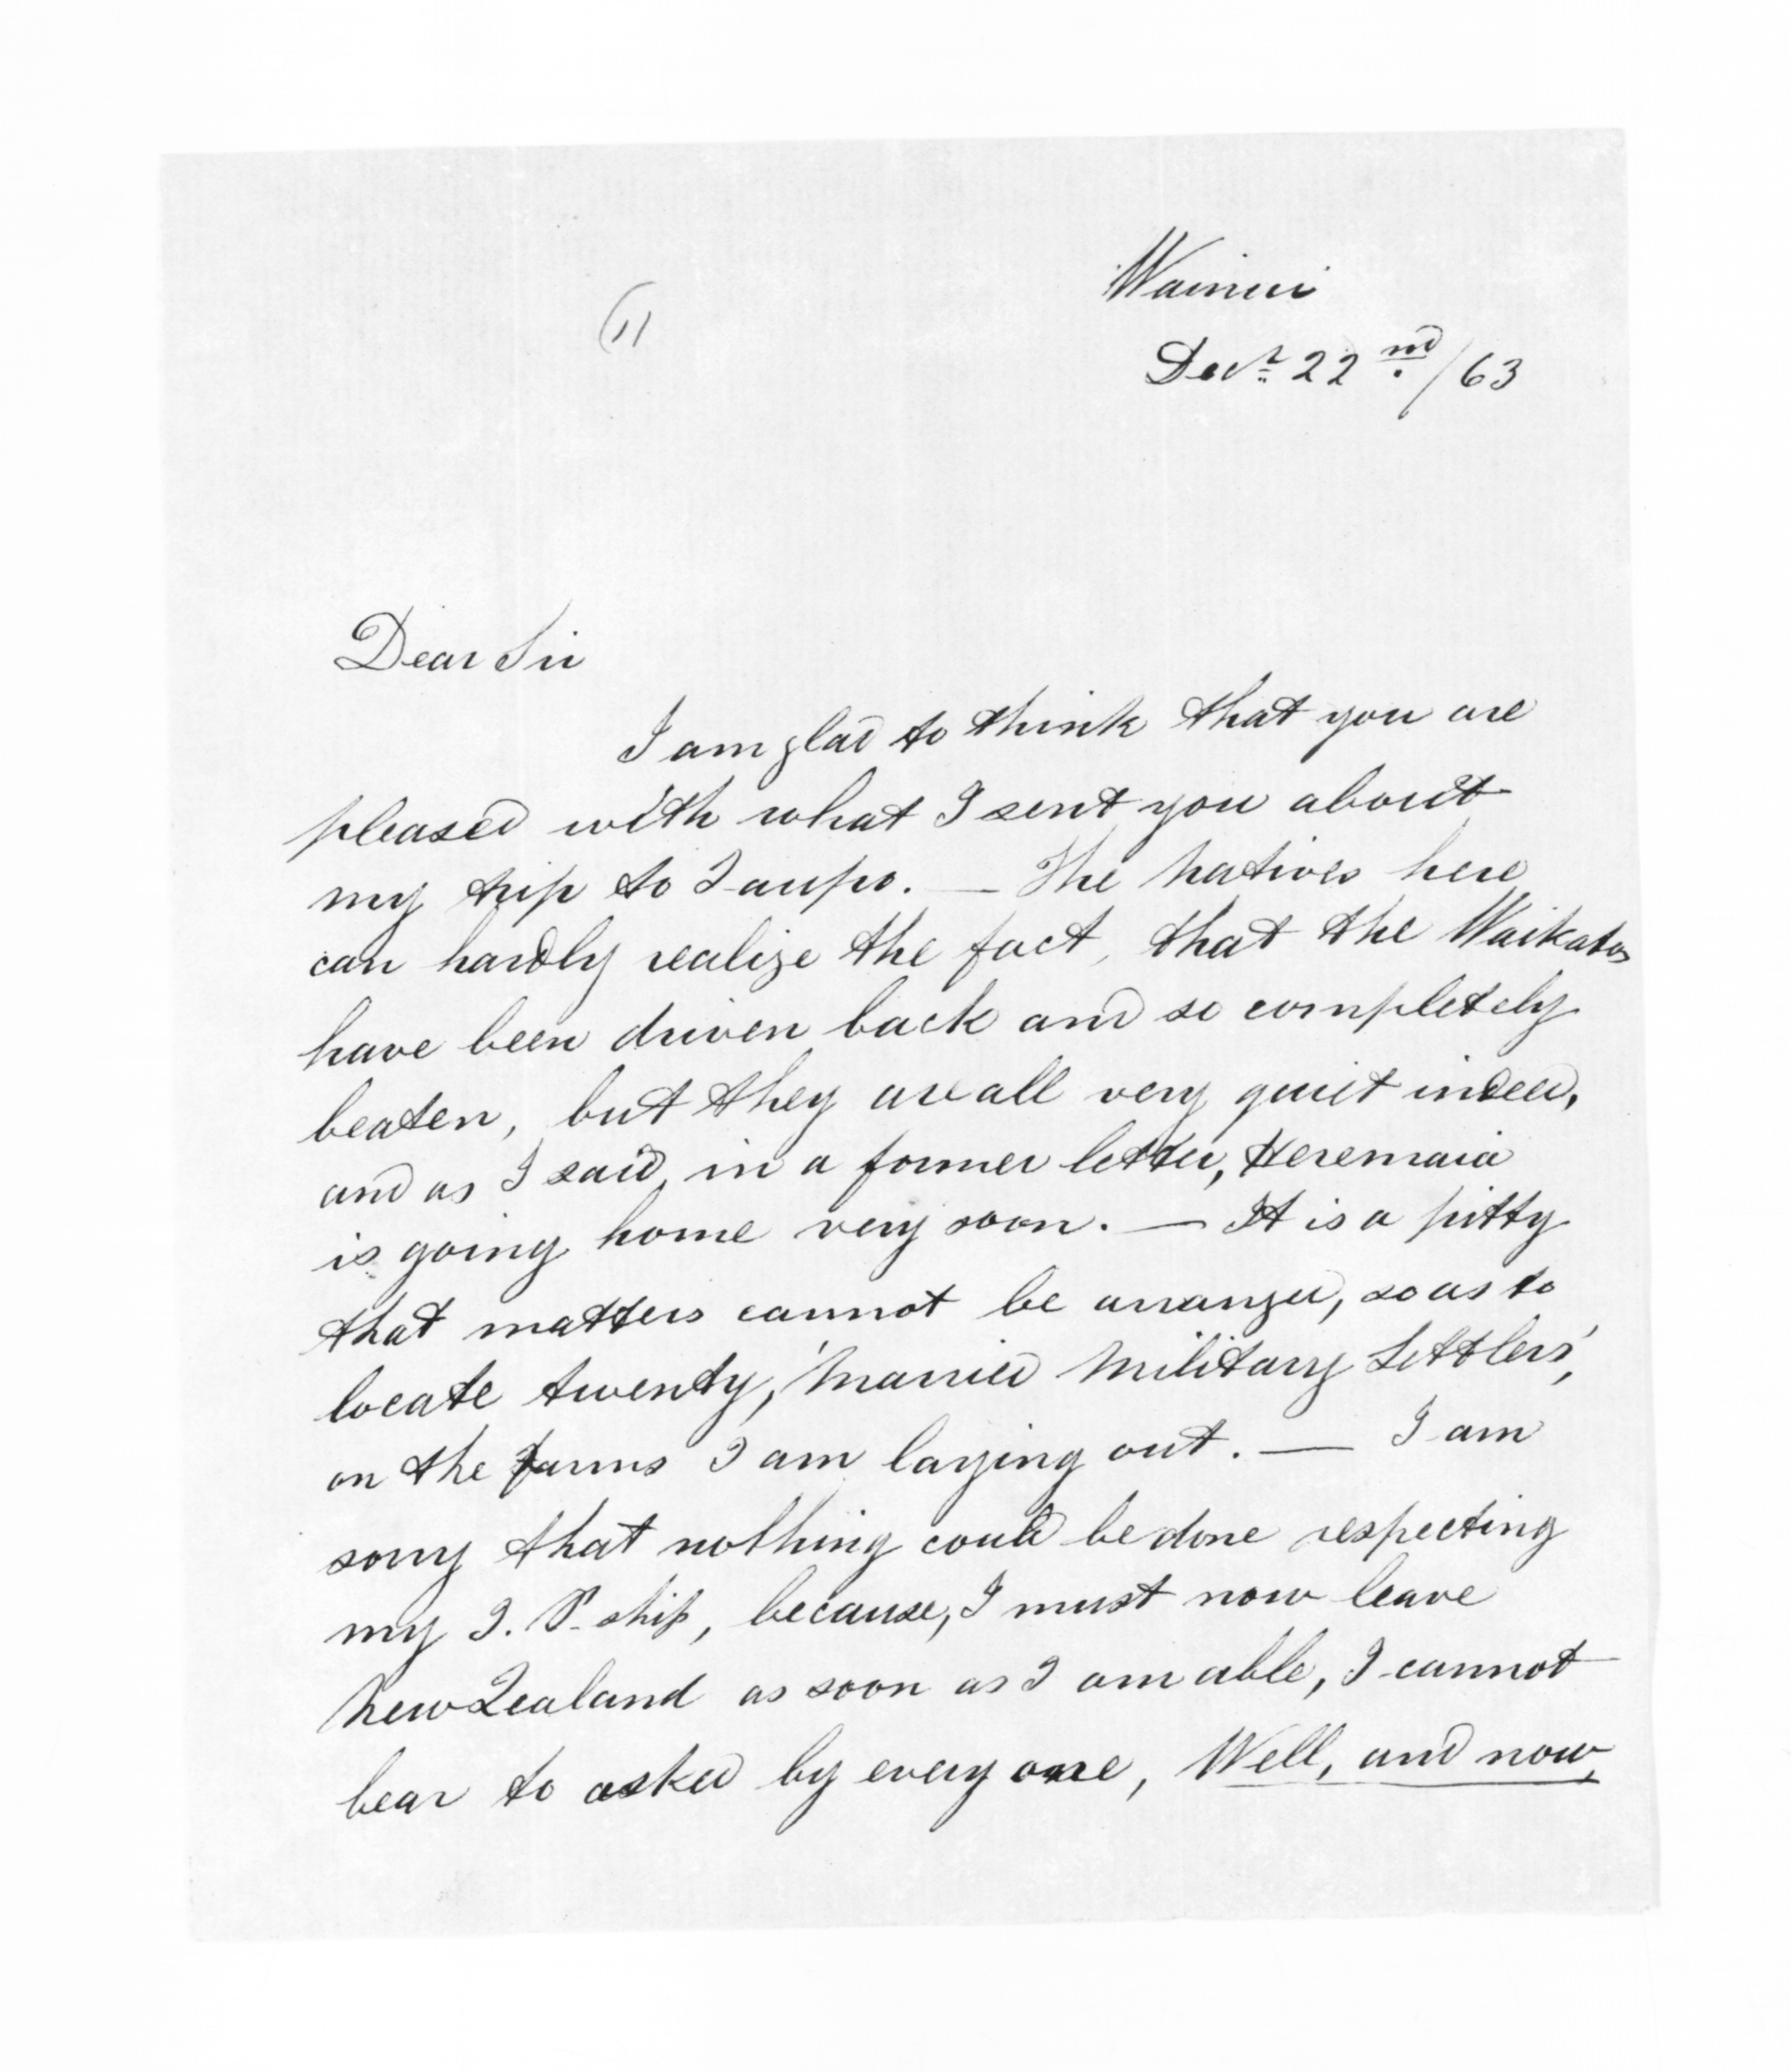 Wainui
(11
Decr. 22nd/63
Dear Sir
I am glad to think that you are
pleased with what I sent you about
my trip to Taupo. — The natives here
can hardly realize the fact, that the Waikatos
have been driven back and so completely
beaten, but they are all very quiet indeed,
and as I said, in a former letter, Heremaia
is going home very soon. — It is a pitty
that matters cannot be arranged, so as to
locate twenty, 'Married Military Settlers',
on the farms I am laying out. — I am
sorry that nothing could be done respecting
my J. P. ship, because, I must now leave
New Zealand as soon as I am able, I cannot
bear to asked by every one, Well, and now,